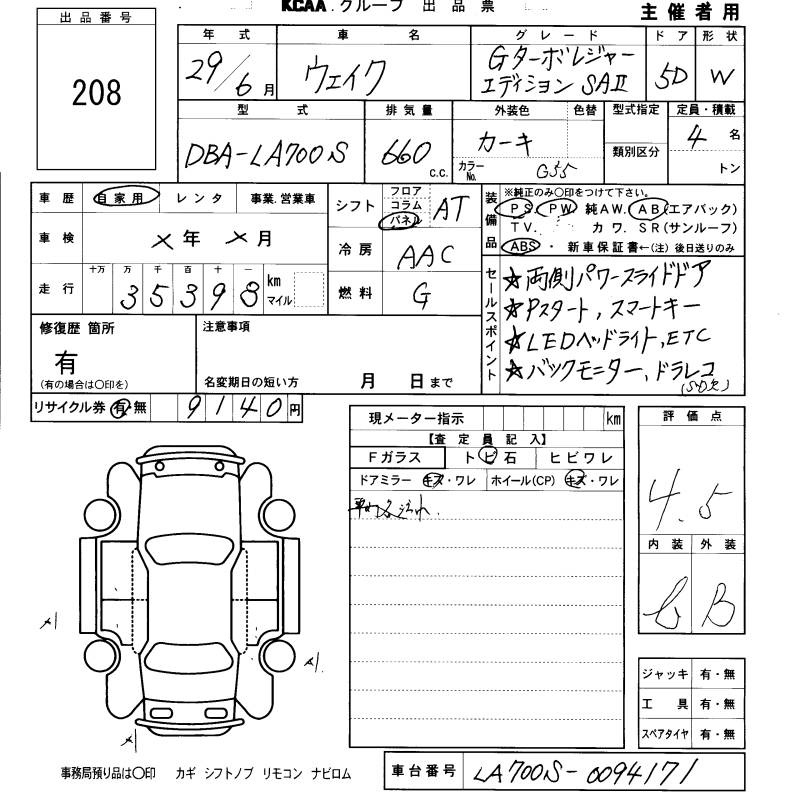 KCAA.グループ 出品票
主催者用
出品番号
208
年式 車名 グレード ドア 形状
29/6月 ウェイク Gターボレジャー 5D W
エディション SAⅡ
型式 排気量 外装色 色替 型式指定 定員・積載
DBA-LA700S 660 c.c. カーキ 4名
カラーNo. G55 類別区分 トン
車歴 自家用 レンタ 事業.営業車
シフト フロア コラム パネル AT
装備品 ※純正のみ〇印をつけて下さい。
PS. PW 純AW. AB(エアバック)
TV. カワ. SR(サンルーフ)
ABS・ 新車保証書←(注) 後日送りのみ
車検 ×年 ×月
冷房 AAC
走行 十万 万 千 百 十 一 km マイル
35398
燃料 G
セールスポイント
☆両側パワースライドドア
☆Pスタート,スマートキー
☆LEDヘッドライト,ETC
☆バックモニター,ドラレコ
(SD欠)
修復歴 箇所 注意事項
有
(有の場合は〇印を) 名変期日の短い方 月 日まで
リサイクル券 有・無 9140円
現メーター指示 km
【査定員記入】
Fガラス トビ石 ヒビワレ
ドアミラー キズ・ワレ ホイール(CP) キズ・ワレ
評価点
4.5
内装 外装
B
A1
A1
A1
ジャッキ 有・無
工具 有・無
スペアタイヤ 有・無
事務局預り品は〇印 カギ シフトノブ リモコン ナビロム
車台番号 LA700S-0094171